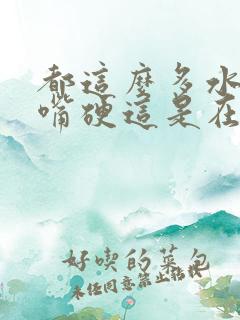 都這麼多水
嘴硬這是在
好喫的菜包
未經同意禁止轉載